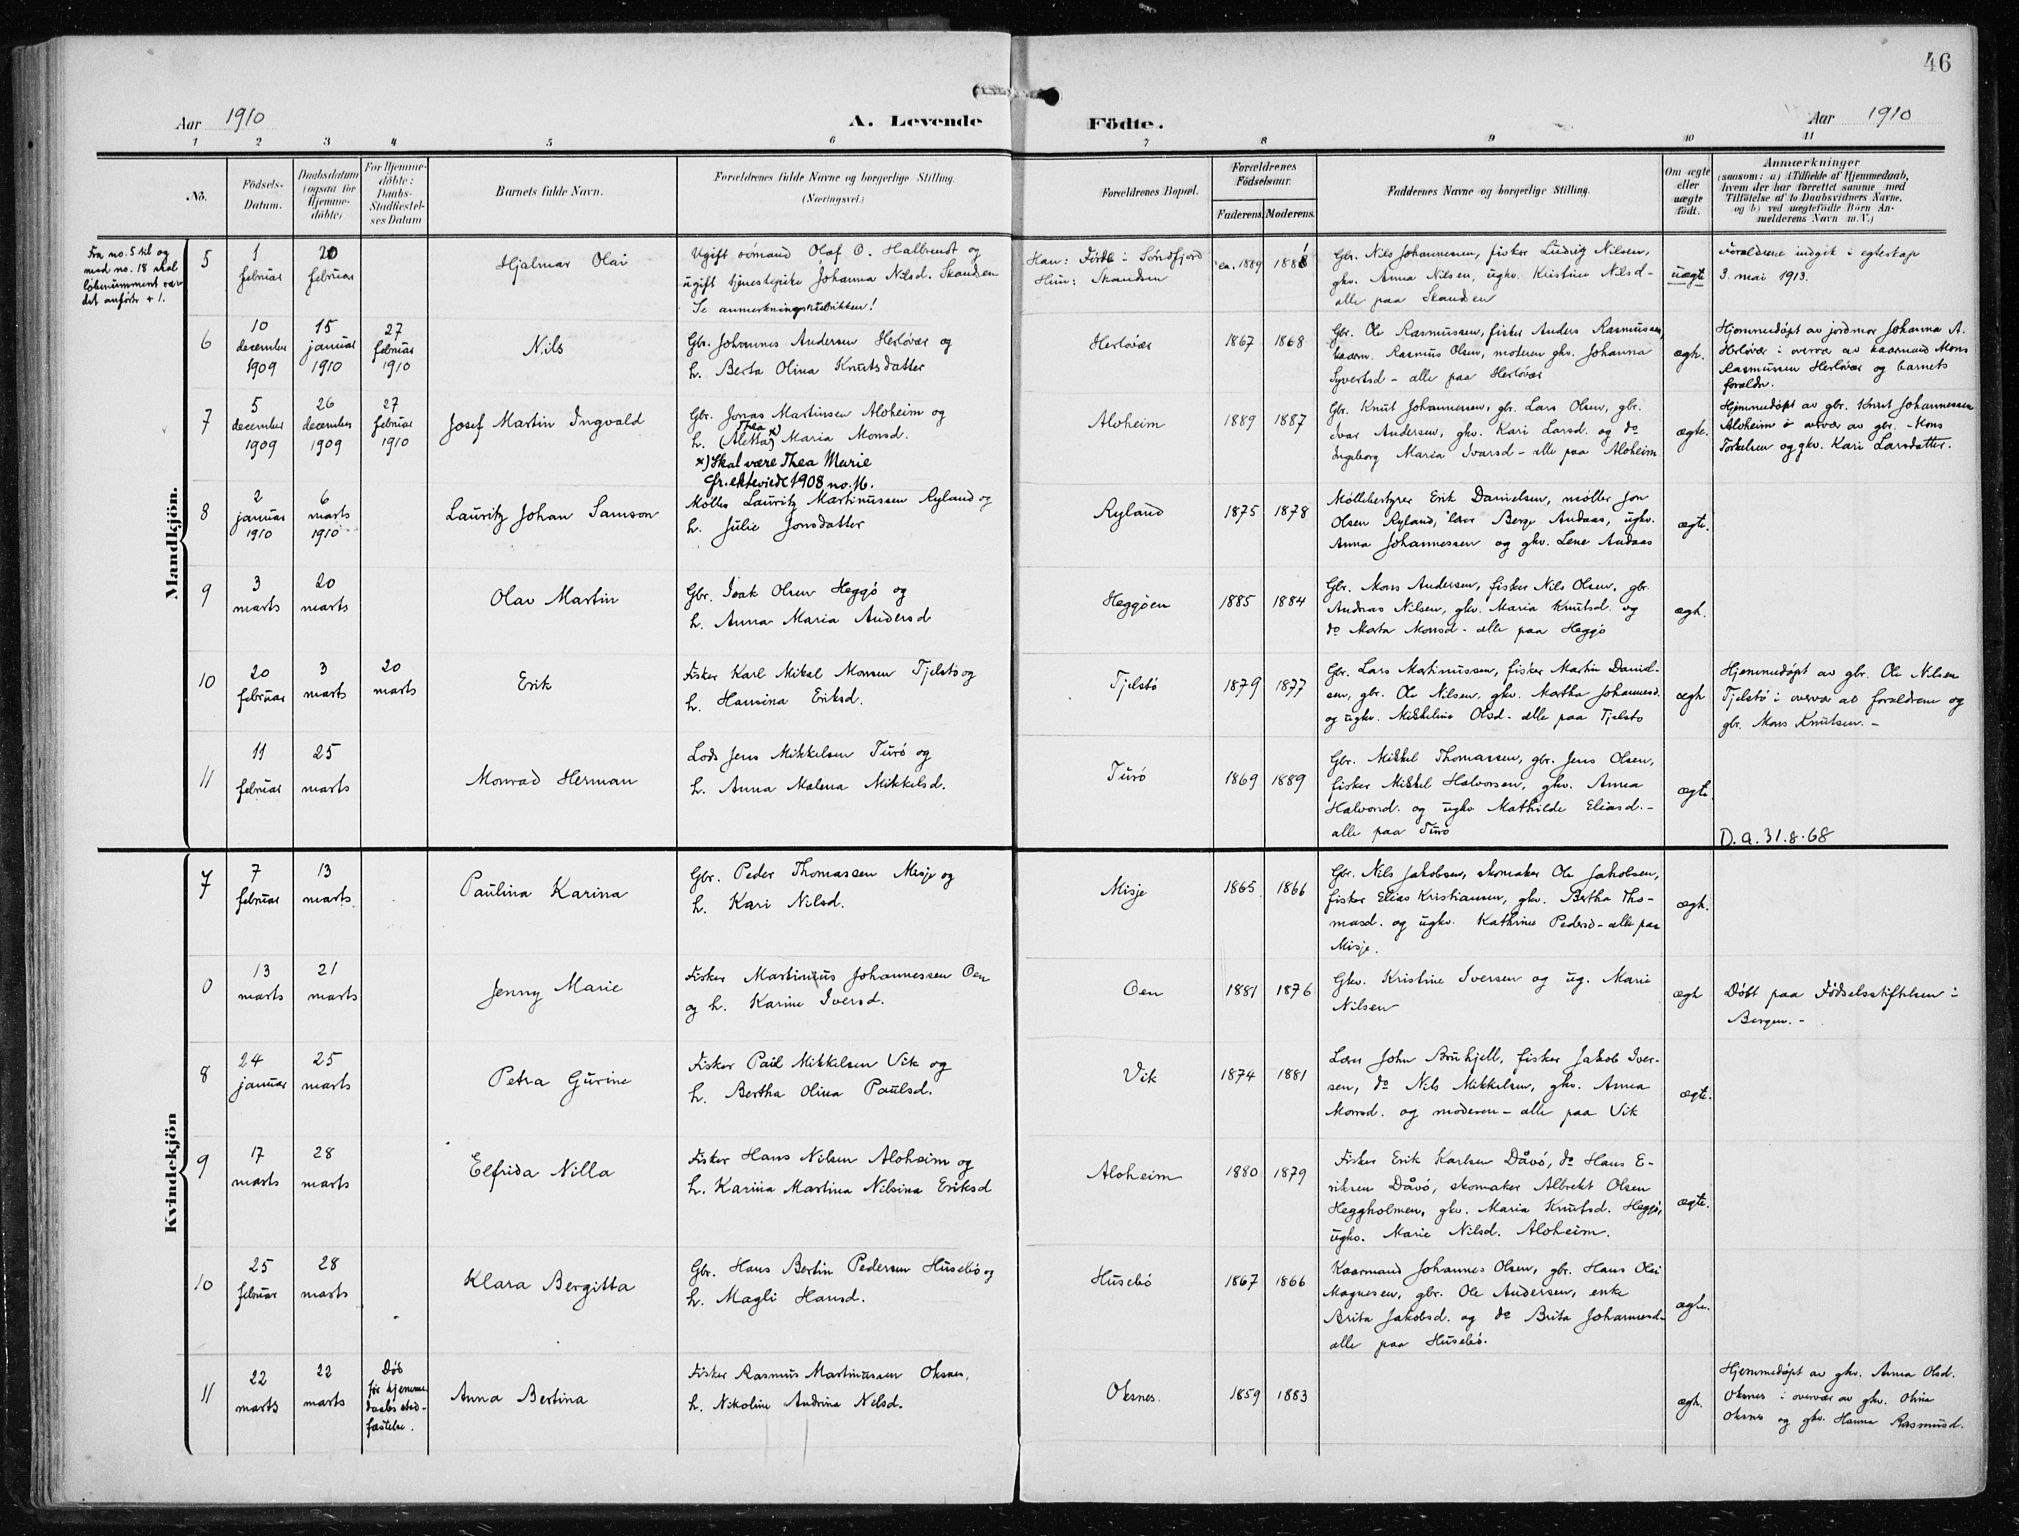 46
Aar 1910
A. Levende
Födte.
Aar 1910
1 2 3 4 5 6 7 8 9 10 11
No.
Födsels-
Datum.
Daabsdatum
(ogsaa for
Hjemme-
döbte)
For Hjemme-
döbte:
Daabs-
Stadfæstel-
ses Datum
Barnets fulde Navn.
Forældrenes fulde Navne og borgerlige Stilling.
(Næringsvei.)
Forældrenes Bopæl.
Forældrenes
Födselsaar.
Faderens. Moderens.
Faddernes Navne og borgerlige Stilling.
Om ægte
eller
uægte
födt.
Anmærkninger
(saasom: a) i Tilfælde af Hjemmedaab,
hvem der har forrettet samme med
Tilföielse af to Daabsvidners Navne,
og b) ved uægtefödte Börn An-
melderens Navn m. V.)
Fra no. 5 til og
med no. 18 skal
löbenummeret vær
det anförte + 1.
Mandkjön.
5
1
februar
20
februar
Hjalmar Olai
Ugift sömand Olaf O. Halbrendt og
ugift tjenestepike Johanna Nilsd. Skanden
Se anmerkningsrubrikken!
Han: Förde i Söndfjord
Hun: Skanden
ca. 1889
1888
Gbr. Nils Johannessen, fisker Ludvig Nilsen,
gkv. Anna Nilsen, ugkv. Kristine Nilsd-
alle paa Skanden
uægte
Forældrene indgik i egteskap
3. mai 1913.
6
10
december
1909
15
januar
1910
27
februar
1910
Nils
Gbr. Johannes Andersen Herløvær og
h. Berta Olina Knutsdatter
Herløvær
1867
1868
Gbr. Ole Rasmussen, fisker Anders Rasmussen,
kaarm. Rasmus Olsen, moderen gkv. Johanna
Syvertsd - alle paa Herløvær
ægte.
Hjemmedøpt av jordmor Johanna A.
Herløvær i overvær av kaarmand Mons
Rasmussen Herløvær og barnets
forældre.
7
5
december
1909
26
december
1909
27
februar
1910
Josef Martin Ingvald
Gbr. Jonas Martinsen Aloheim og
Thea x)
h. (Aletta) Maria Monsd.
x) Skal være Thea Marie
cfr. ekteviede 1908 no. 16.
Aloheim
1889
1887
Gbr. Knut Johannessen, gbr. Lars Olsen, gbr.
Ivar Andersen, gkv. Kari Larsd. og do
Ingeborg Maria Ivarsd - alle paa Aloheim
ægte.
Hjemmedøpt av gbr. Knut Johannessen
Aloheim i overvær av gbr. Mons
Torkelsen og gkv. Kari Larsdatter.
8
2
januar
1910
6
marts
1910
Lauritz Johan Samson
Møller Lauritz Martinussen Ryland og
h. Julie Jonsdatter
Ryland
1875
1878
Møllebestyrer Erik Danielsen, møller Jon
Olsen Ryland, lærer Berge Andaas, ugkv.
Anna Johannessen og gkv. Lene Andaas
ægte.
9
3
marts
20
marts
Olav Martin
Gbr. Isak Olsen Heggö og
h. Anna Maria Andersd
Heggøen
1885
1884
Gbr. Mons Andersen, fisker Nils Olsen, gbr.
Andreas Nilsen, gkv. Maria Knutsd. og
do Marta Monsd - alle paa Heggö
ægte.
10
20
februar
3
marts
20
marts
Erik
Fisker Karl Mikal Monsen Tjelstö og
h. Hansina Eriksd.
Tjelstö
1879
1877
Gbr. Lars Matinussen, fisker Martin David-
sen, gbr. Ole Nilsen, gkv. Martha Johannesd.
og ugkv. Mikkeline Olsd. - alle paa Tjelstö
ægte
Hjemmedøpt av gbr. Ole Nilsen
Tjelstö i overvær av forældrene og
gbr. Mons Knutsen. -
11
11
februar
25
marts
Monrad Herman
Lods Jens Mikkelsen Turö og
h. Anna Malena Mikkelsd.
Turö
1869
1889
Gbr. Mikkel Thomassen, gbr. Jens Olsen,
fisker Mikkel Halvorsen, gkv. Anna
Halvorsd. og ugkv Mathilde Eliasd. -
alle paa Turö
ægte.
D.a. 31.8.68
Kvindekjön
7
7
februar
13
marts
Paulina Karina
Gbr. Peder Thomassen Misje og
h. Kari Nilsd.
Misje
1865
1866
Gbr. Nils Jakobsen, skomaker Ole Jakobsen,
fisker Elias Kristiansen, gkv. Bertha Tho-
masd. og ugkv. Kathrine Pedersd - alle paa
Misje.
ægte.
0
13
marts
21
marts
Jenny Marie
Fisker Martinius Johannessen Oen
og h. Karine Iversd.
Oen
1881
1876
Gkv. Kristine Iversen og ug. Marie
Nilsen
ægte
Döbt paa Födselsstiftelsen i
Bergen. -
8
24
januar
25
marts
Petra Gurine
Fisker Paul Mikkelsen Vik og
h. Bertha Olina Paulsd.
Vik
1874
1881
Lærer John Bruhjell, fisker Jakob Iver-
sen, do Nils Mikkelsen, gkv. Anna
Monsd. og moderen - alle paa Vik
ægte.
9
17
marts
28
marts
Elfrida Nilla
Fisker Hans Nilsen Aloheim og
h. Karina Martina Nilsina Eriksd
Aloheim
1880
1879
Fisker Erik Karlsen Dåvö, do Hans E-
riksen Dåvö, skomaker Albrekt Olsen
Heggholmen, gkv. Maria Knutsd. Heggö,
ugkv. Marie Nilsd. Aloheim.
ægte.
10
25
februar
28
marts
Klara Bergitta
Gbr. Hans Bertin Pedersen Husebö og
h. Magli Hansd.
Husebö
1867
1866
Kaarmand Johannes Olsen, gbr. Hans Olai
Magnesen, gbr. Ole Andersen, enke
Brita Jakobsd. og do Brita Johannesd-
alle paa Husebö.
ægte.
11
22
marts
22
marts
Död
för hjemme
daabs stad-
fæstelse.
Anna Bertina
Fisker Rasmus Martinussen Oksnes,
h. Nikoline Andrina Nelsd.
Oksnes.
1859
1883
ægte.
Hjemmedøpt av gkv. Anna Olsd.
Oksnes i overvær av gkv. Olina
Oksnes og gkv. Hanna Rasmusd.